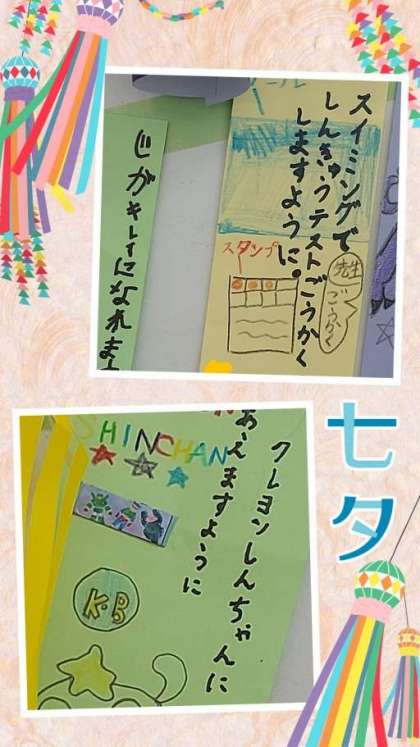 スイミングで
しんきゅうテストごうかく
しますように。
プール
スタンプ
先生
ごうかく
じがキレイになれま
七夕
SHINCHAN
クレヨンしんちゃんに
あえますように
K・B